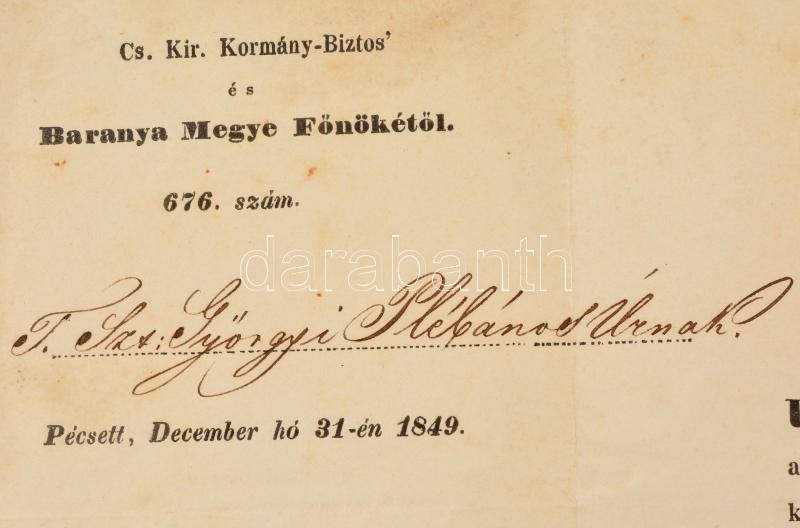 Cs. Kir. Kormány-Biztos'
és
Baranya Megye Főnökétől.
676. szám.
darabanth
T. Szt: Györgyi Plébános Úrnak.
Pécsett, December hó 31-én 1849.
a
k